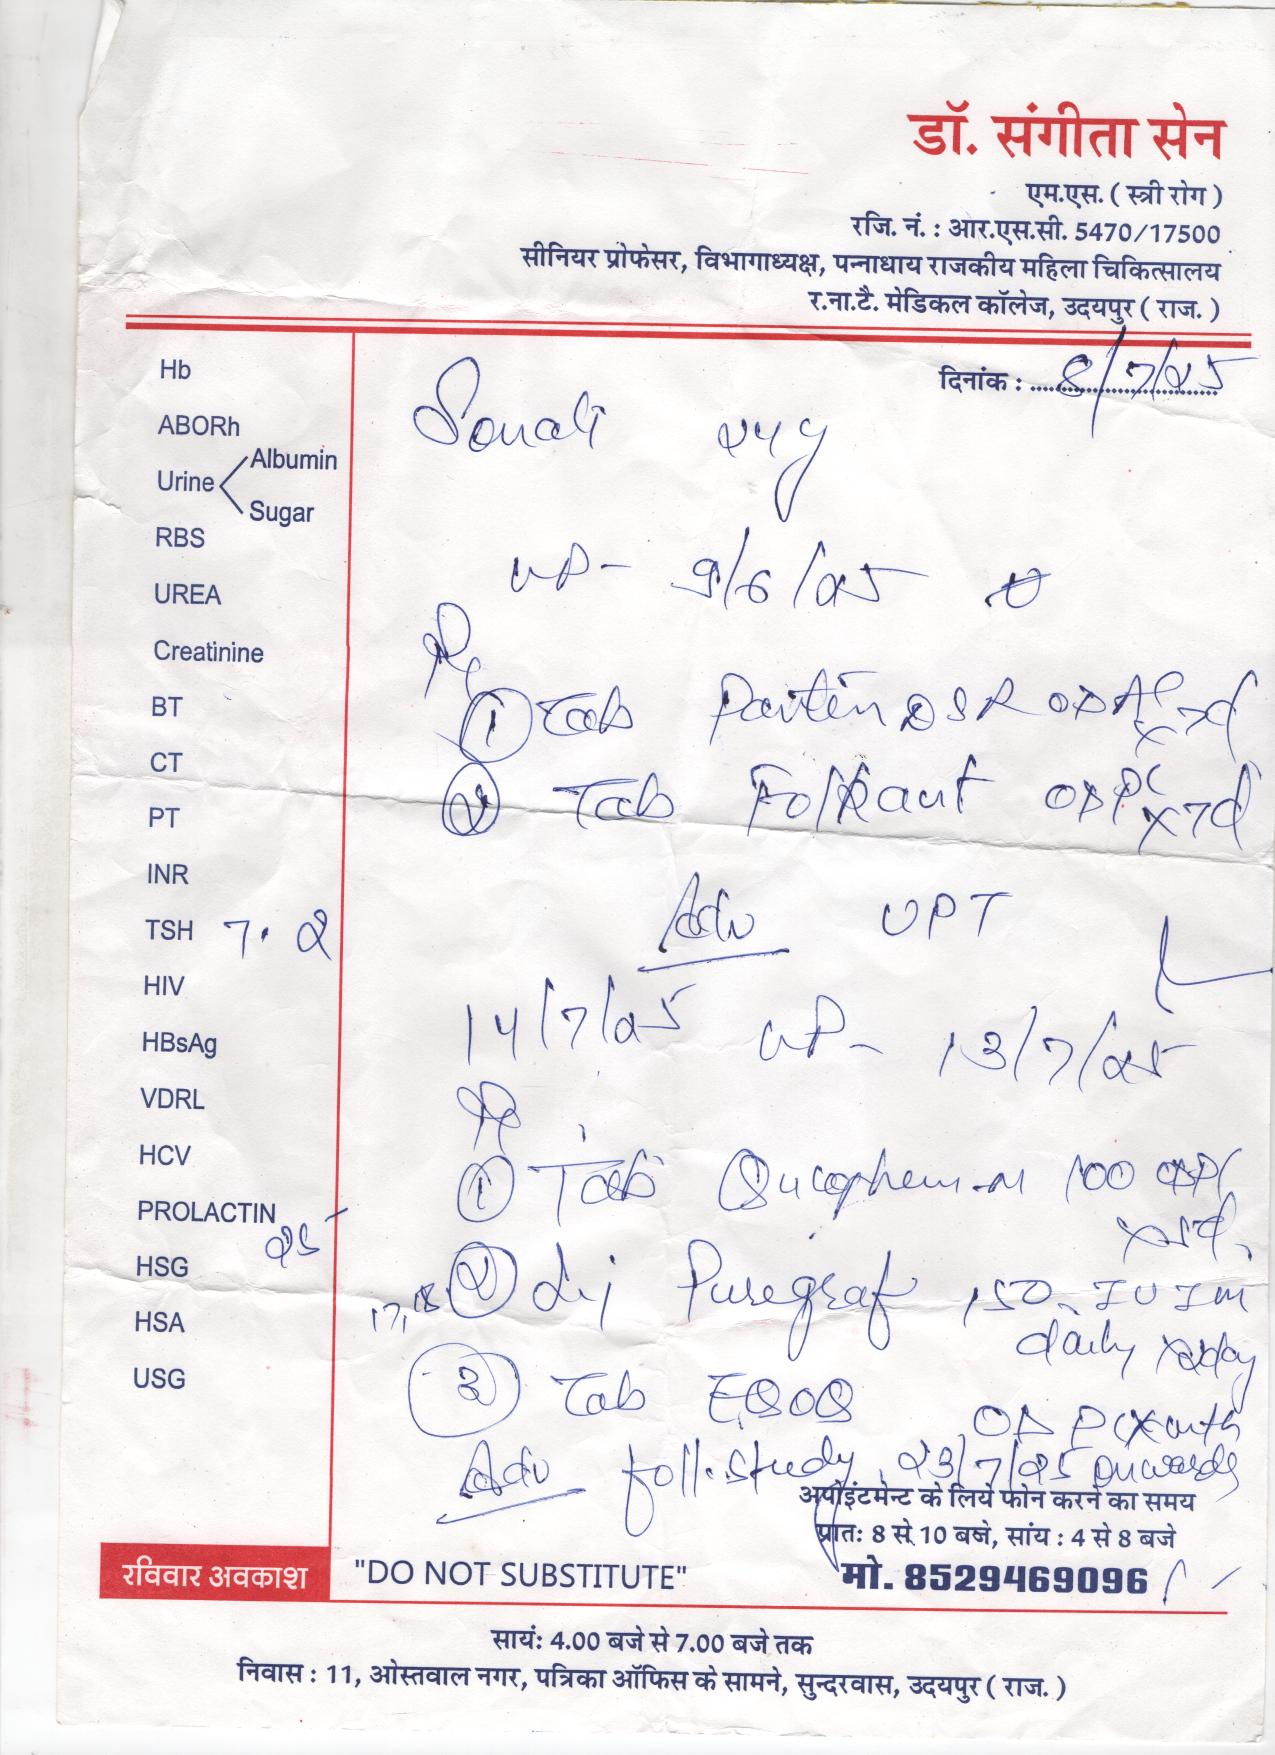 डॉ. संगीता सेन
एम.एस. ( स्त्री रोग )
रजि. नं. : आर.एस.सी. 5470/17500
सीनियर प्रोफेसर, विभागाध्यक्ष, पन्नाधाय राजकीय महिला चिकित्सालय
र.ना.टै. मेडिकल कॉलेज, उदयपुर ( राज. )
दिनांक : 8/7/25
Hb
ABORh
Urine Albumin
Sugar
RBS
UREA
Creatinine
BT
CT
PT
INR
TSH 7.2
HIV
HBsAg
VDRL
HCV
PROLACTIN
25
HSG
HSA
USG
Sonali 24y
9/6/25
Rx
① Tab Pantin DSR OD AC x7d
② Tab OD PC x7d
Adv UPT
14/7/25 13/7/25
Rx
① Tab 100 OD PC
x5d
17, 18 ② Inj Puregraf 150 IU IM
daily x2day
③ Tab OD PC
Adv foll. study 23/7/25 onwards
अपोइंटमेन्ट के लिये फोन करने का समय
प्रातः 8 से 10 बजे, सांय : 4 से 8 बजे
मो. 8529469096
रविवार अवकाश
"DO NOT SUBSTITUTE"
सायं: 4.00 बजे से 7.00 बजे तक
निवास : 11, ओस्तवाल नगर, पत्रिका ऑफिस के सामने, सुन्दरवास, उदयपुर ( राज. )